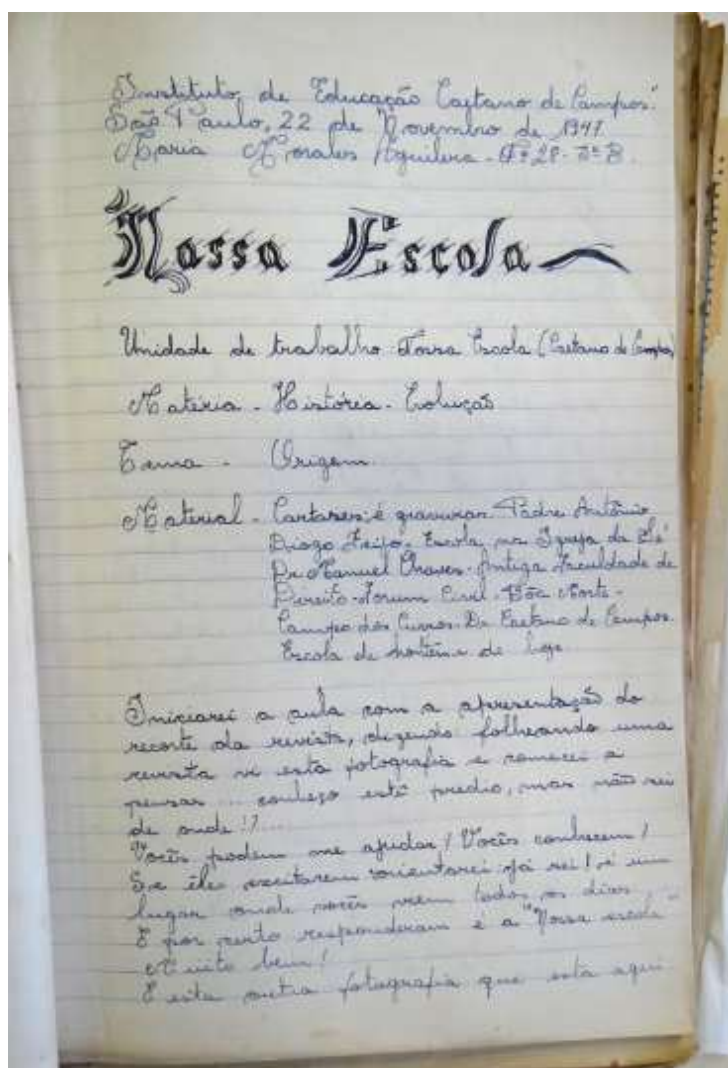 Instituto de Educação Caetano de Campos."
São Paulo, 22 de Novembro de 1947.
Maria Morales Aguilera - Nº 28 -
Nossa Escola
Unidade de trabalho - Nossa Escola (Caetano de Campos)
Matéria - História - Evolução
Tema - Origem
Material - Cartazes e gravuras - Padre Antônio
Diogo Feijó - Escola na Igreja da Sé
Dr. Manuel Chaves - Antiga Faculdade de
Direito - Forum Civil - Morte -
Campo dos Curros - Dr. Caetano de Campos.
Escola de de hoje
Iniciarei a aula com a apresentação do
recorte da revista, dizendo folheando uma
revista vi esta fotografia e comecei a
pensar ... conheço este predio, mas não sei
de onde!?...
Vocês podem me ajudar! Vocês conhecem!
Se êles orientarei já sei! é um
lugar onde vocês vem todos os dias ...
E por certo responderam é a "Nossa escola"
Muito bem!
E esta outra fotografia que esta aqui